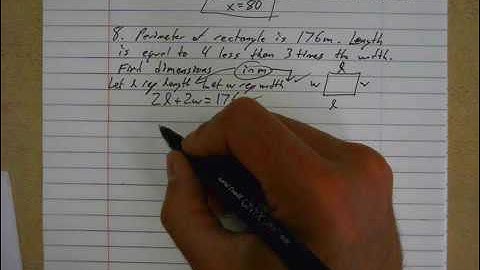 x=80
8. Perimeter of rectangle is 176m. Length
is equal to 4 less than 3 times the width.
Find dimensions (in m)
l
Let l rep length Let w rep width
w w
l
2l+2w=176